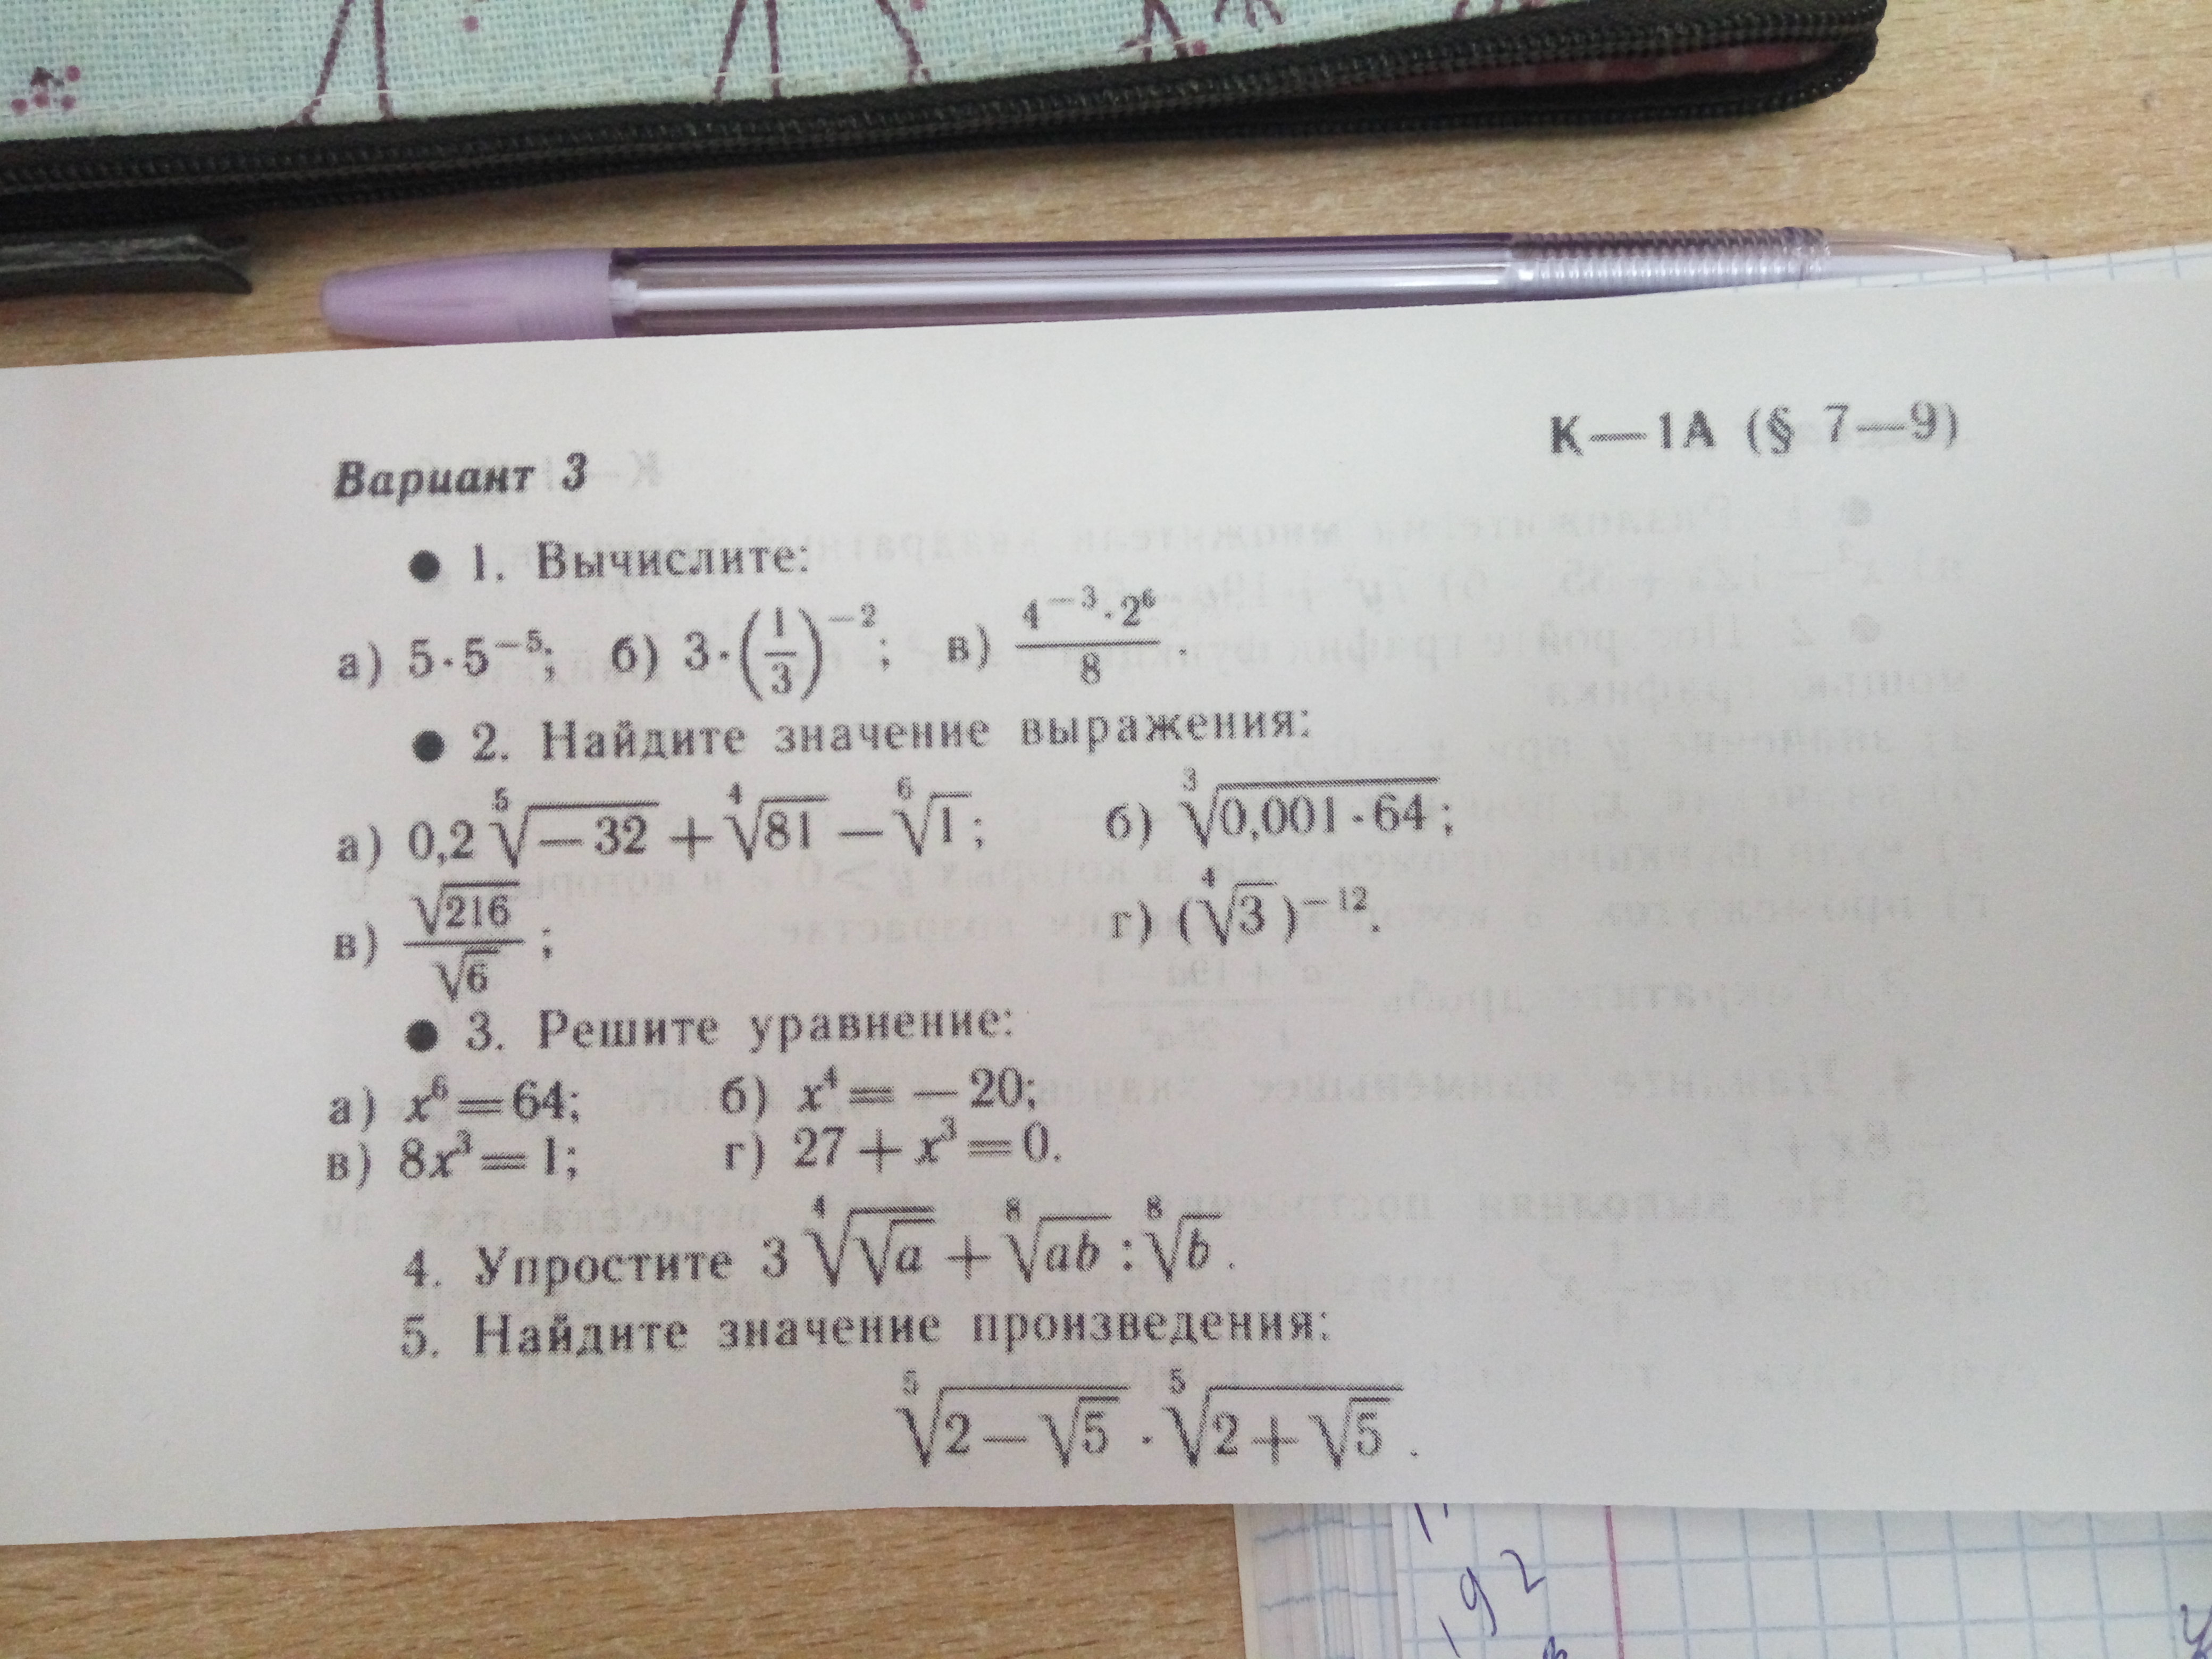 К—1А (§ 7—9)
Вариант 3
● 1. Вычислите:
а) 5·5⁻⁵; б) 3·(1/3)⁻²; в) (4⁻³·2⁶)/8.
● 2. Найдите значение выражения:
а) 0,2 ⁵√(−32) + ⁴√81 − ⁶√1; б) ³√(0,001·64);
в) √216/√6; г) (⁴√3)⁻¹².
● 3. Решите уравнение:
а) x⁶=64; б) x⁴=−20;
в) 8x³=1; г) 27+x³=0.
4. Упростите 3 ⁴√(√a) + ⁸√(ab) : ⁸√b.
5. Найдите значение произведения:
⁵√(2−√5) · ⁵√(2+√5).
192